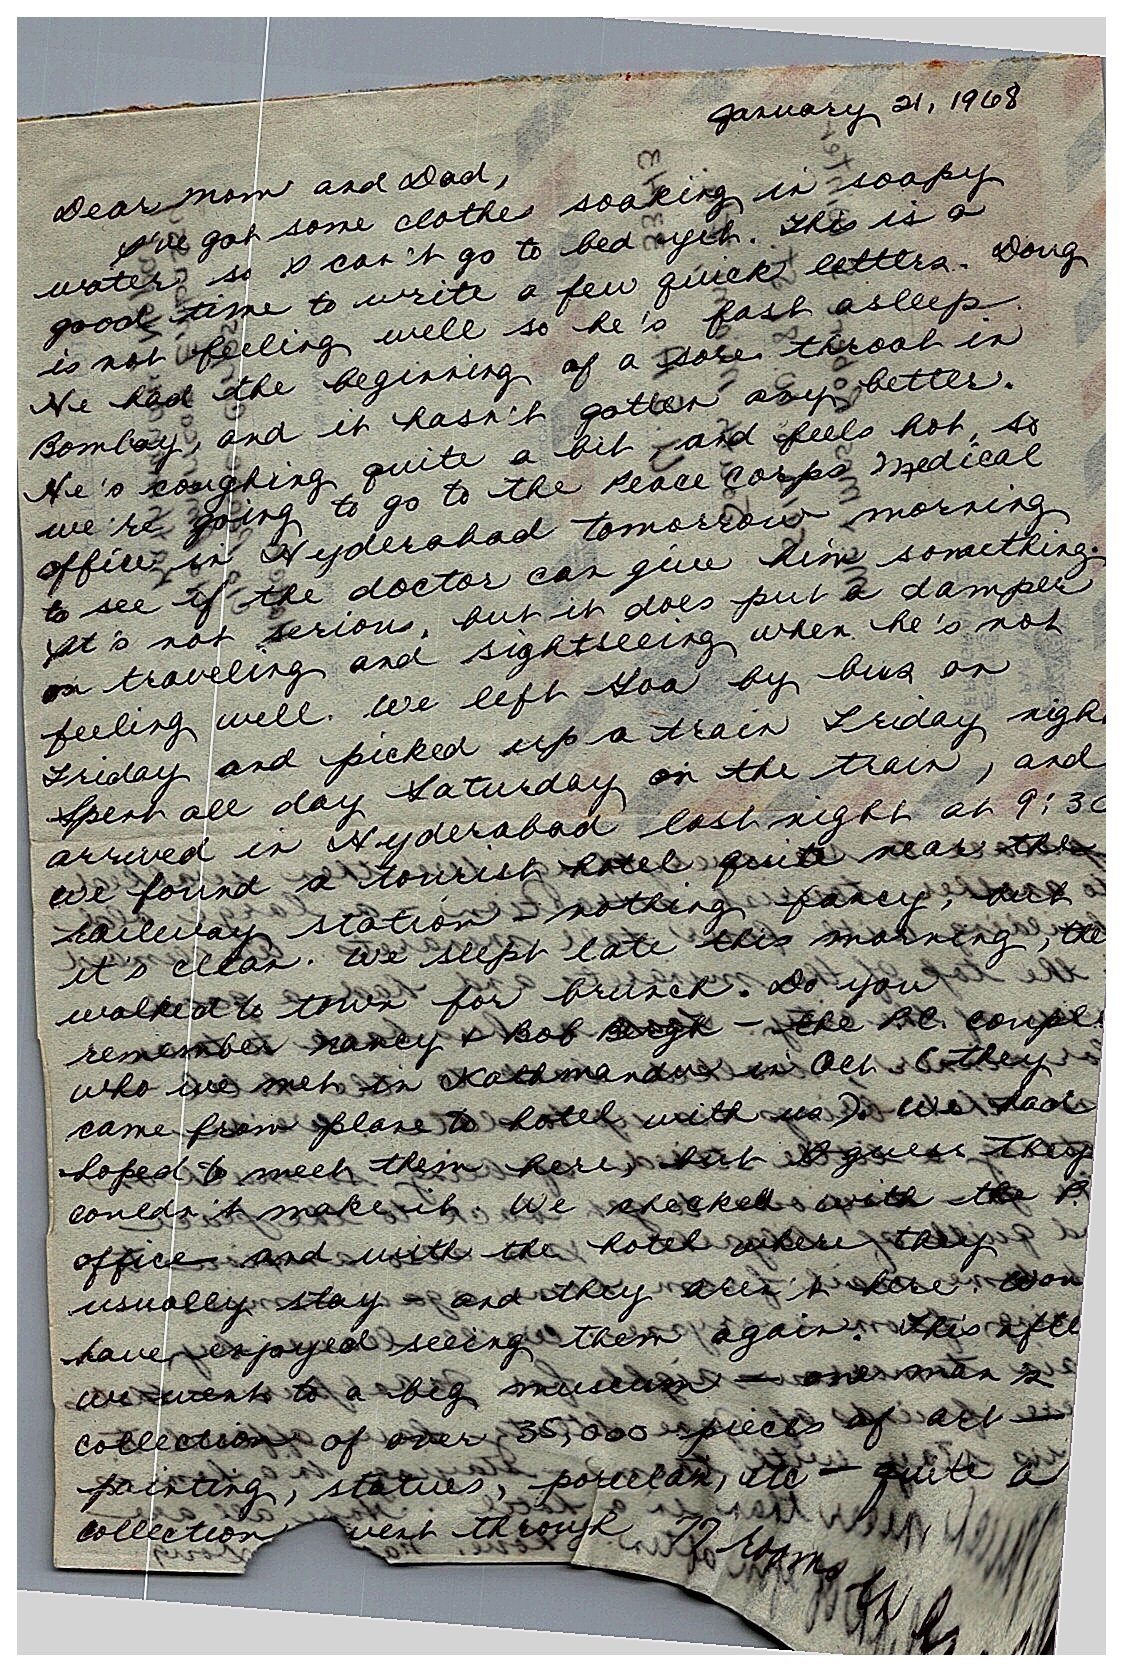 January 21, 1968
Dear Mom and Dad,
I've got some clothes soaking in soapy
water so I can't go to bed yet. This is a
good time to write a few quick letters. Doug
is not feeling well so he's fast asleep.
He had the beginning of a sore throat in
Bombay, and it hasn't gotten any better.
He's coughing quite a bit, and feels hot, so
we're going to go to the Peace Corps Medical
office in Hyderabad tomorrow morning
to see if the doctor can give him something.
It's not serious, but it does put a damper
on traveling and sightseeing when he's not
feeling well. We left Goa by bus on
Friday and picked up a train Friday nigh
Spent all day Saturday on the train, and
arrived in Hyderabad last night at 9:30
We found a tourist hotel quite near the
railway station - nothing fancy, but
it's clean. We slept late this morning, the
walked to town for brunch. Do you
remember Nancy & Bob - the P.C. couple
who we met in Kathmandu in Oct. (they
came from plane to hotel with us). We had
hoped to meet them here, but I guess they
couldn't make it. We checked with the P.
office and with the hotel where they
usually stay - and they aren't here. Wou
have enjoyed seeing them again. This afte
we went to a big museum - one man's
collection of over 35,000 pieces of art -
painting, statues, porcelan, etc - quite a
collection went through 77 rooms